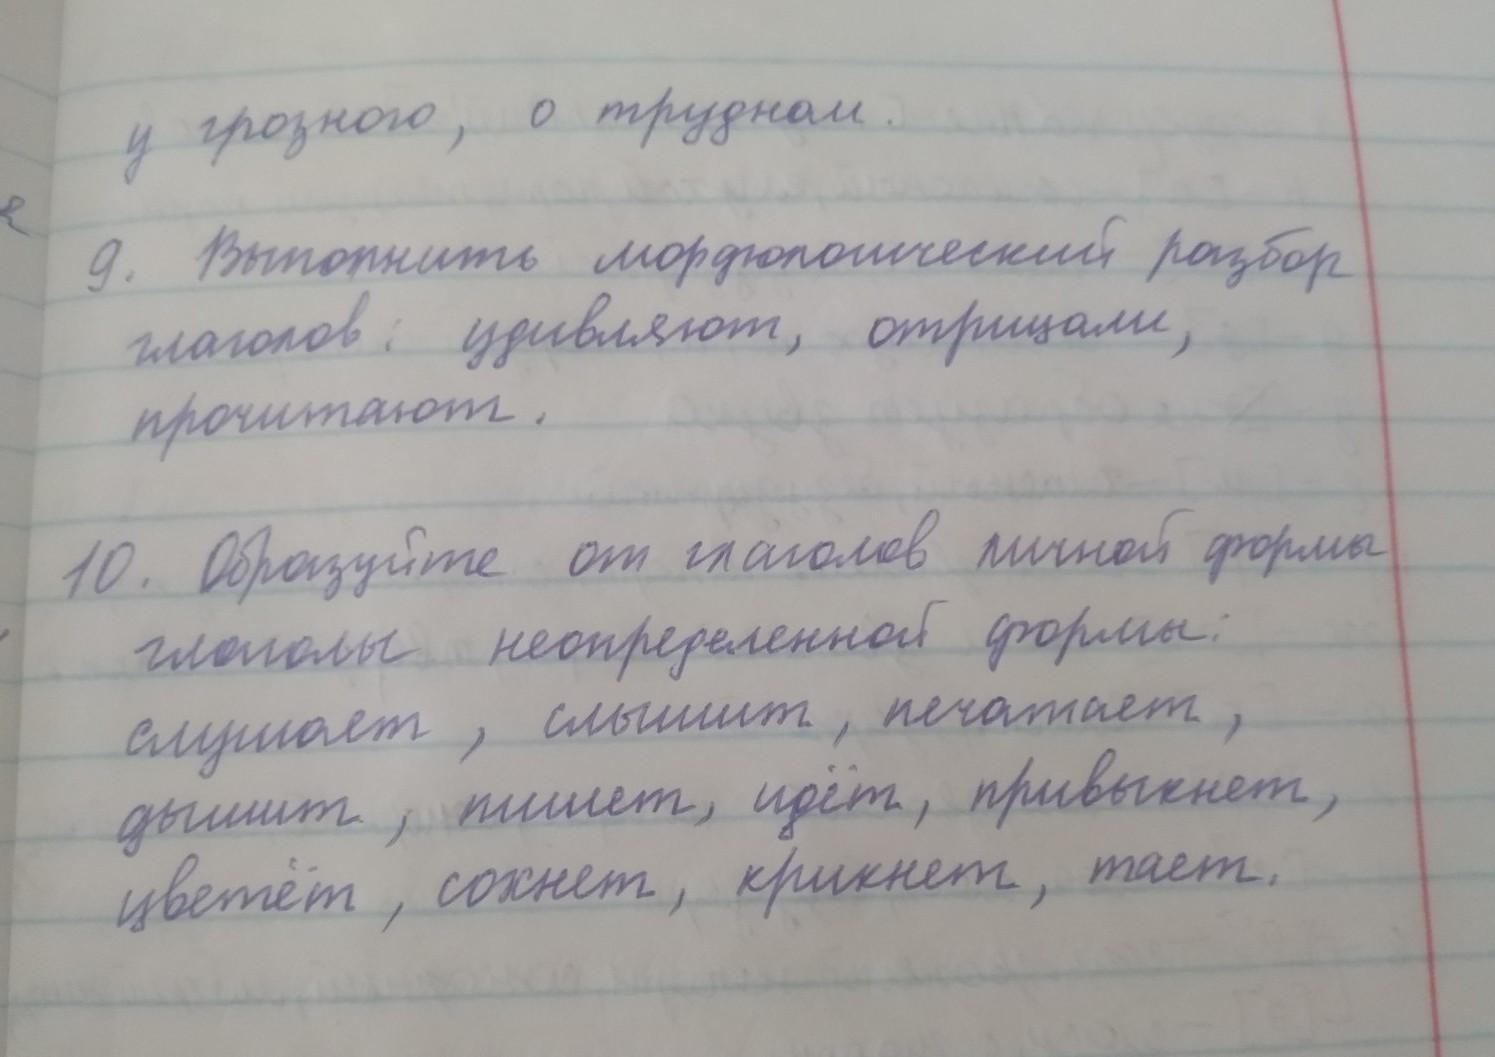 у грозного, о трудном.
9. Выполнить морфологический разбор
глаголов: удивляют, отрицали,
прочитают.
10. Образуйте от глаголов личной формы
глаголы неопределенной формы:
слушает, слышит, печатает,
дышит, пишет, идёт, привыкнет,
цветёт, сохнет, крикнет, тает.